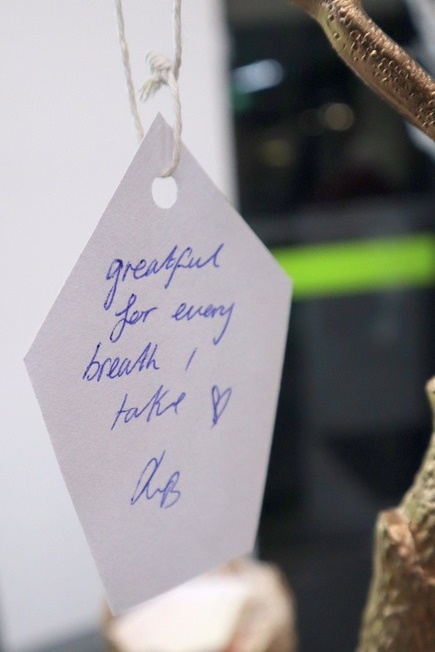 greatful
for every
breath I
take ♡